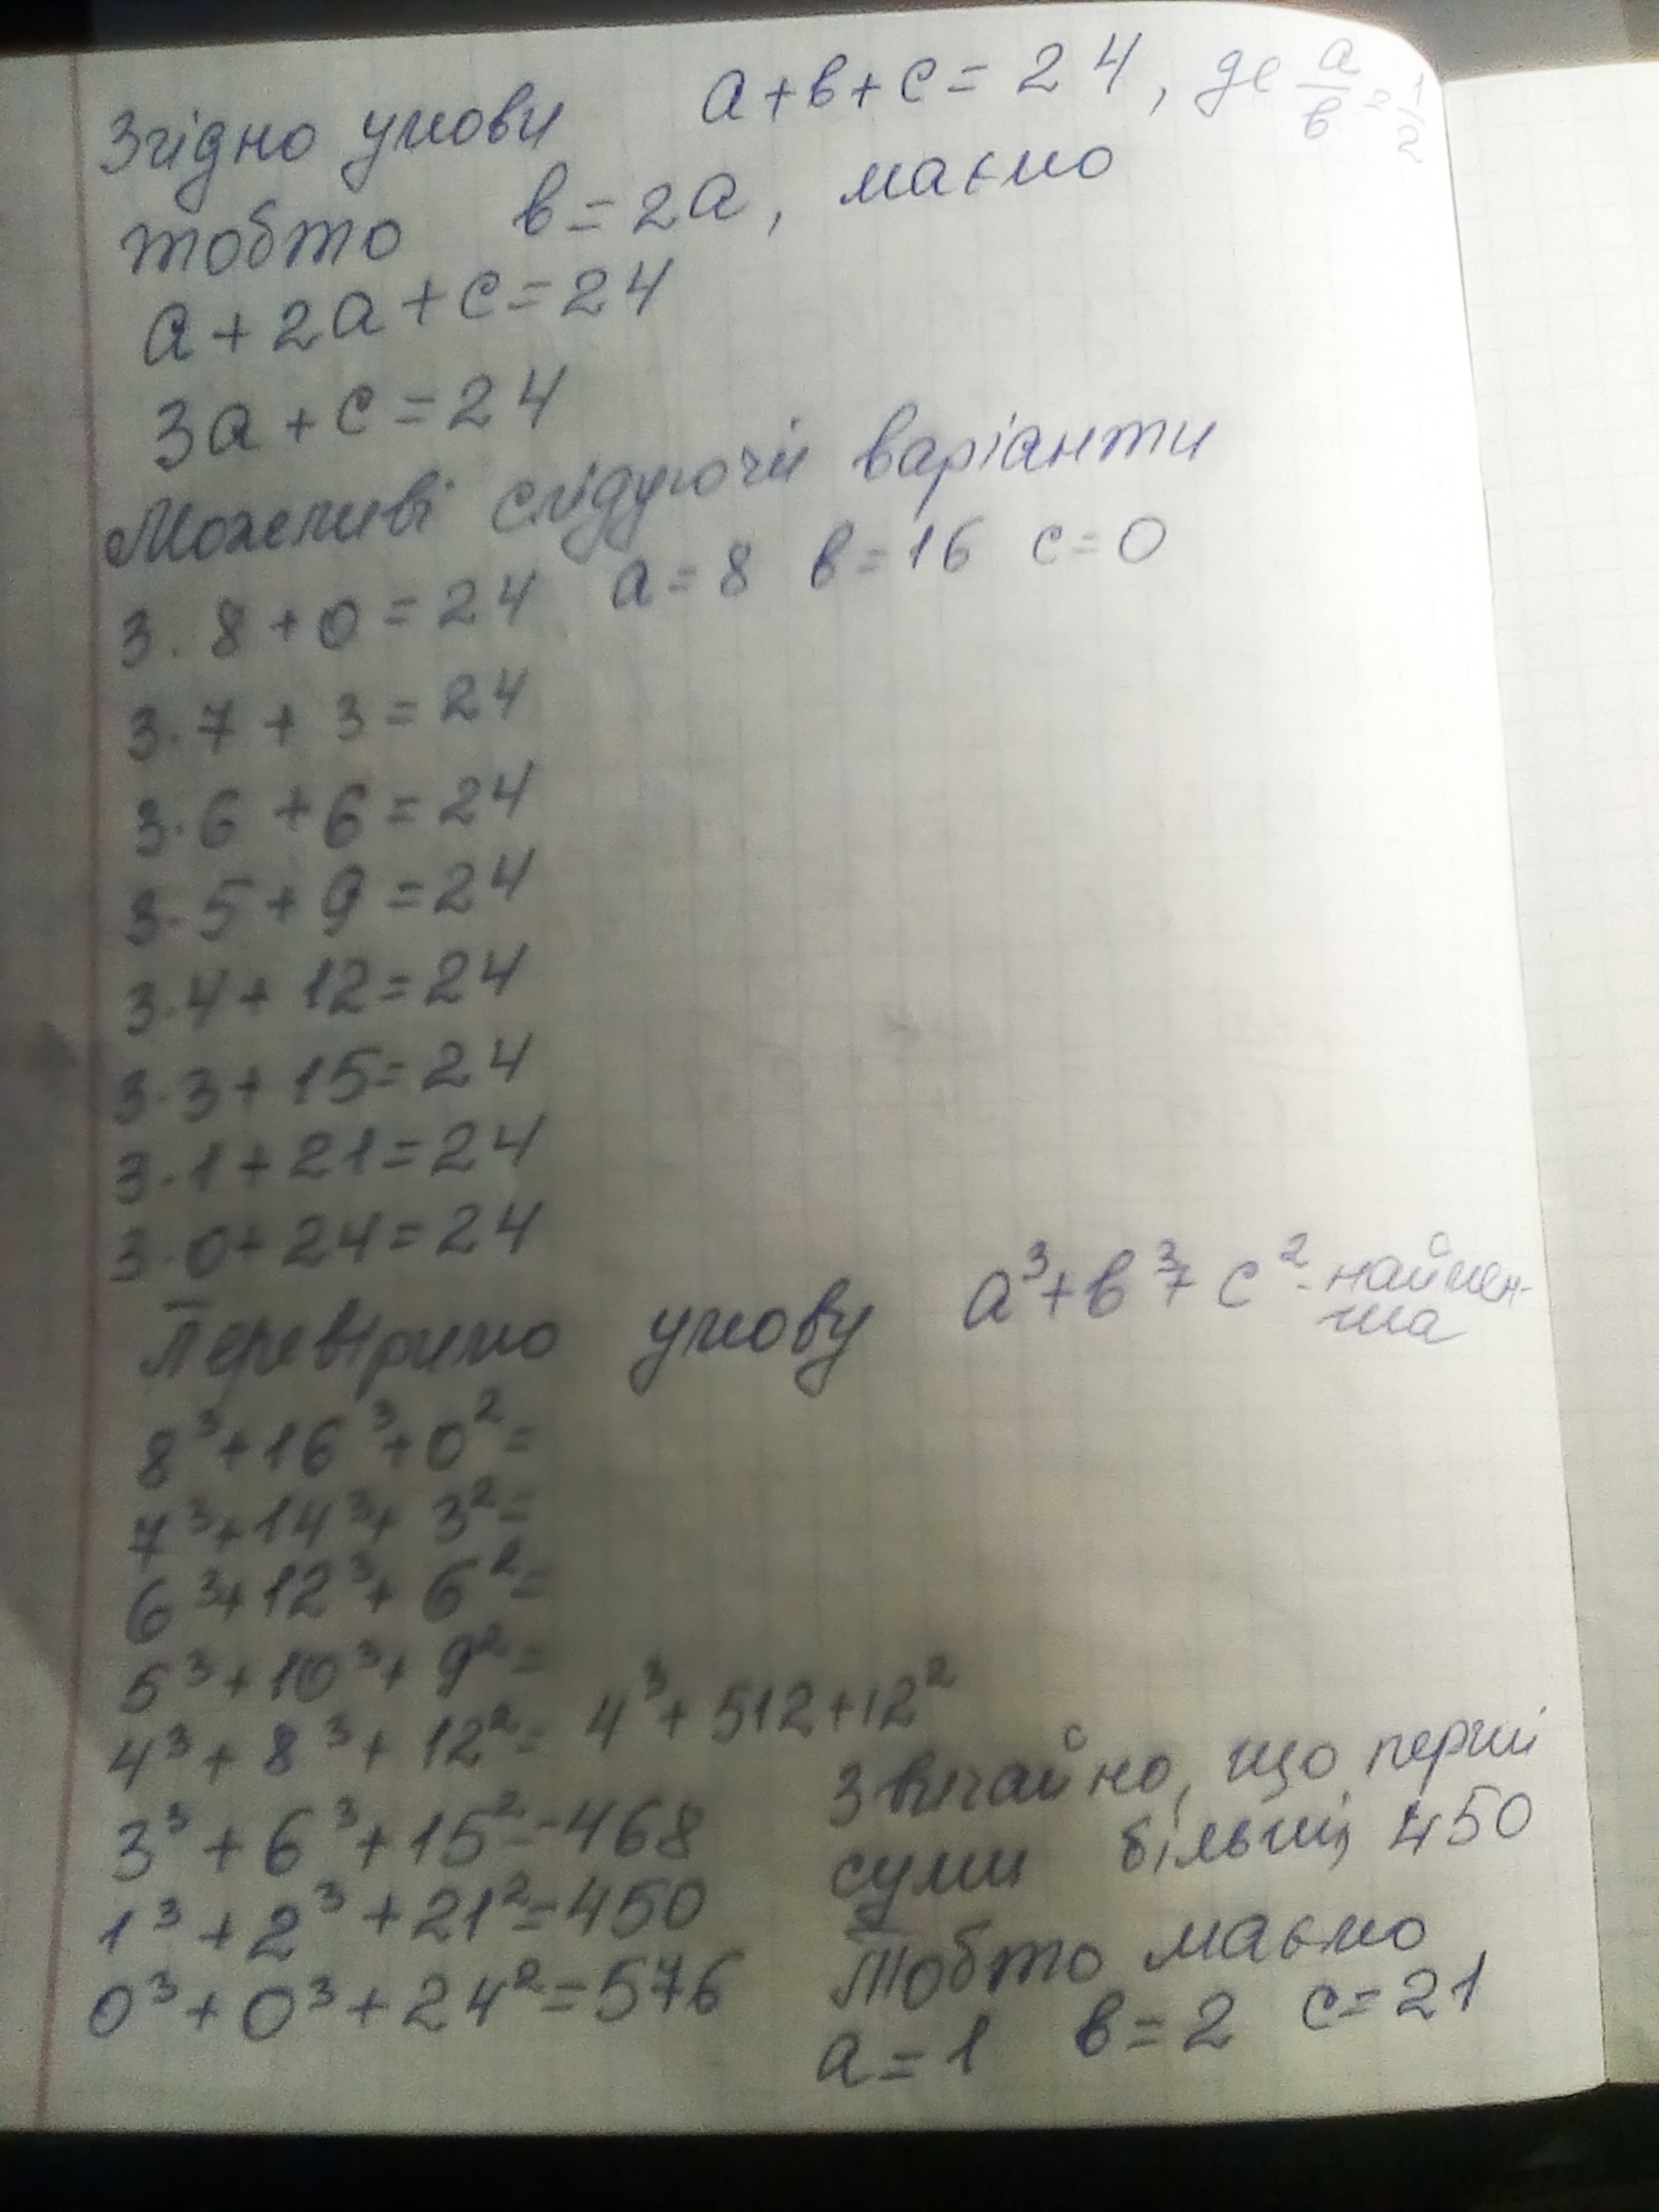 Згідно умови a+b+c=24, де a/b=1/2
тобто b=2a, маємо
a+2a+c=24
3a+c=24
Можливі слідуючі варіанти
3·8+0=24 a=8 b=16 c=0
3·7+3=24
3·6+6=24
3·5+9=24
3·4+12=24
3·3+15=24
3·1+21=24
3·0+24=24
Перевіримо умову a³+b³+c²-наймен-
ша
8³+16³+0²=
7³+14³+3²=
6³+12³+6²=
5³+10³+9²=
4³+8³+12²=4³+512+12²
3³+6³+15²=468
1³+2³+21²=450
0³+0³+24²=576
Звичайно, що перші
суми більші, 450
Тобто маємо
a=1 b=2 c=21